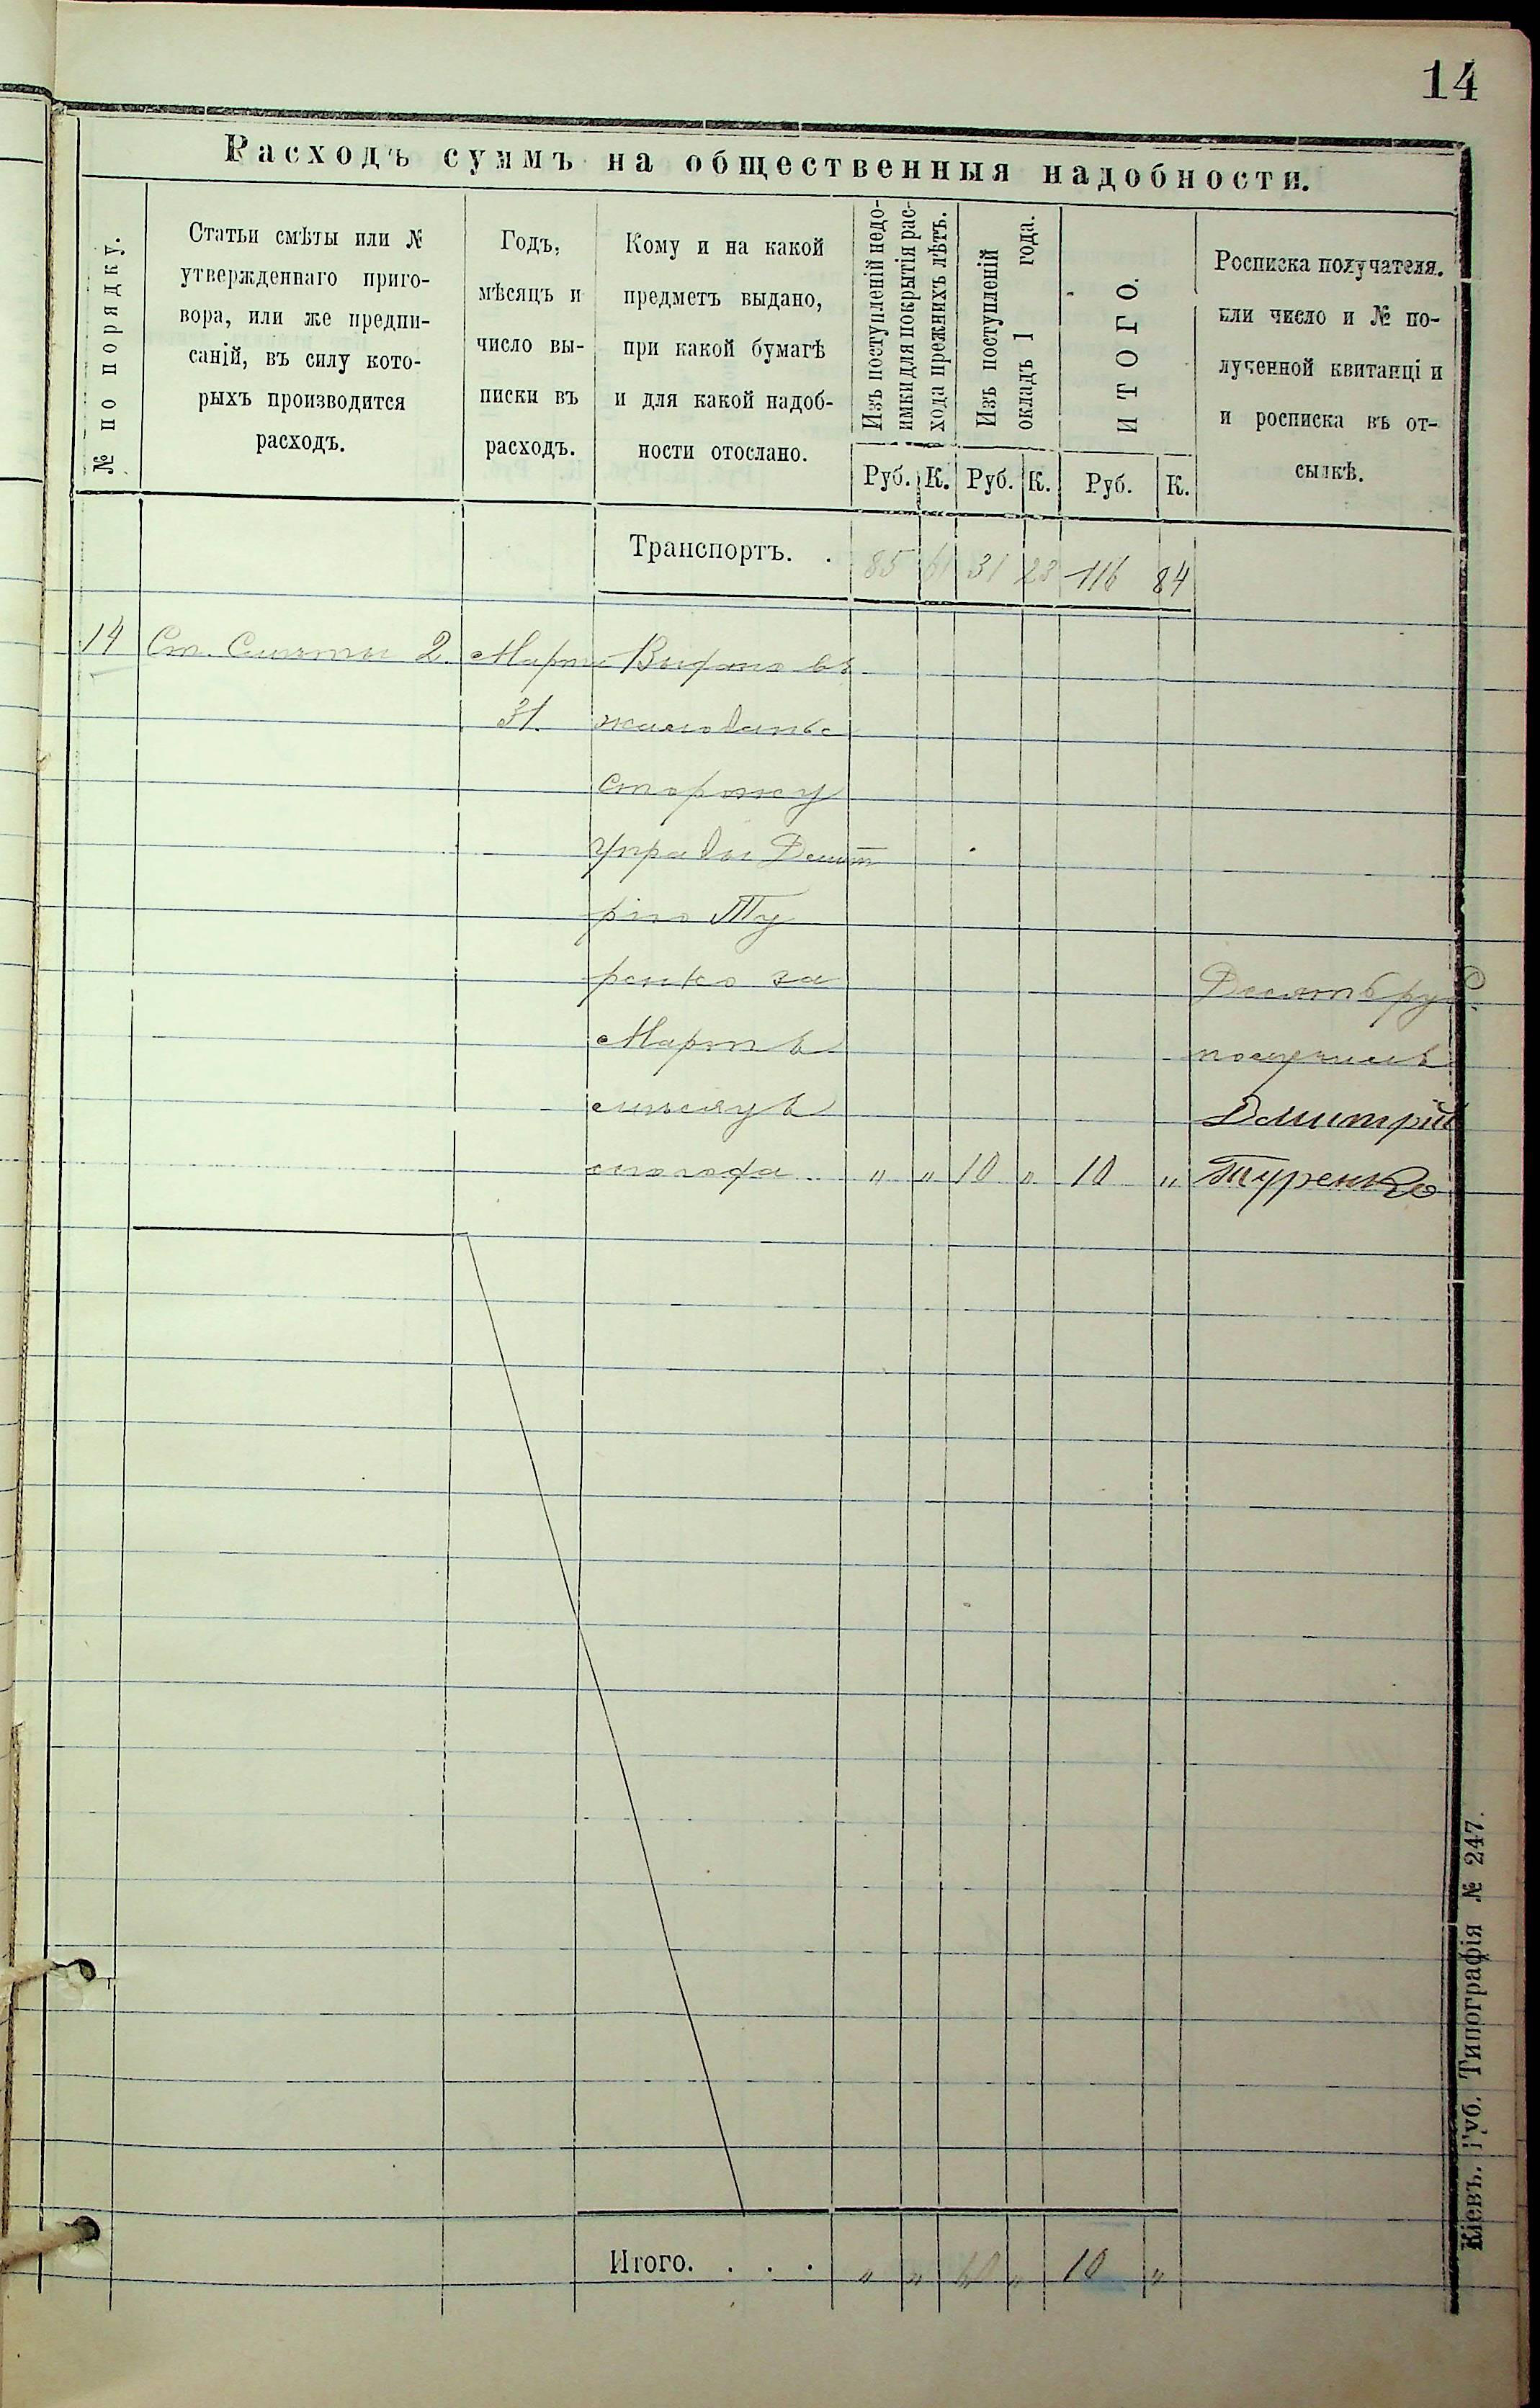 14
Расходъ суммъ на общественныя надобности.
№ по порядку.
Статьи смѣты или №
утвержденнаго приго-
вора, или же предпи-
саній, въ силу кото-
рыхъ производится
расходъ.
Годъ,
мѣсяцъ и
число вы-
писки въ
расходъ.
Кому и на какой
предметъ выдано,
при какой бумагѣ
и для какой надоб-
ности отослано.
Изъ поступленій недо-
имки для покрытія рас-
хода прежнихъ лѣтъ.
Изъ поступленій
окладъ 1 года.
ИТОГО.
Росписка получателя.
или число и № по-
лученной квитанціи
и росписка въ от-
сылкѣ.
Руб. К. Руб. К. Руб. К.
Транспортъ. . 85 61 31 23 116 84
14 Ст. Смѣты 2. Марта Выдано въ
31. жалованье
сторожу
Управы Дмит
рію Ту
ренко за
Мартъ
мѣсяцъ
сего года „ „ 10 „ 10 „
Десять руб.
получилъ
Дмитрій
Туренко
Итого. . . . „ „ 10 „ 10 „
Кіевъ. Губ. Типографія № 247.